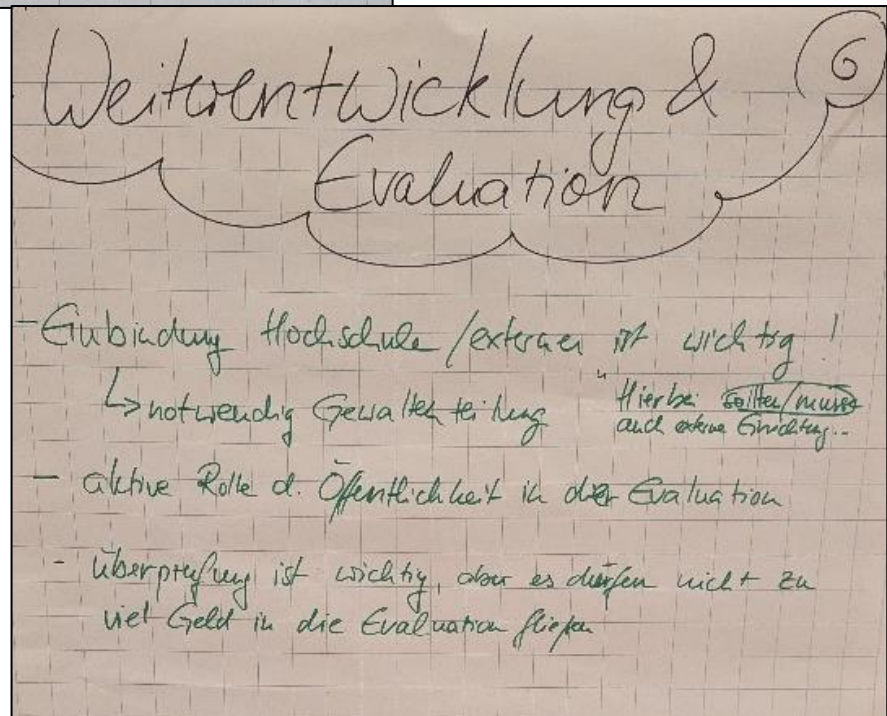 Weiterentwicklung & 6
Evaluation
- Einbindung Hochschule/externer ist wichtig!
↳ notwendig Gewaltenteilung
"Hierbei sollten/müssen
auch externe Einrichtung...
- aktive Rolle d. Öffentlichkeit in der Evaluation
- Überprüfung ist wichtig, aber es dürfen nicht zu
viel Geld in die Evaluation fließen